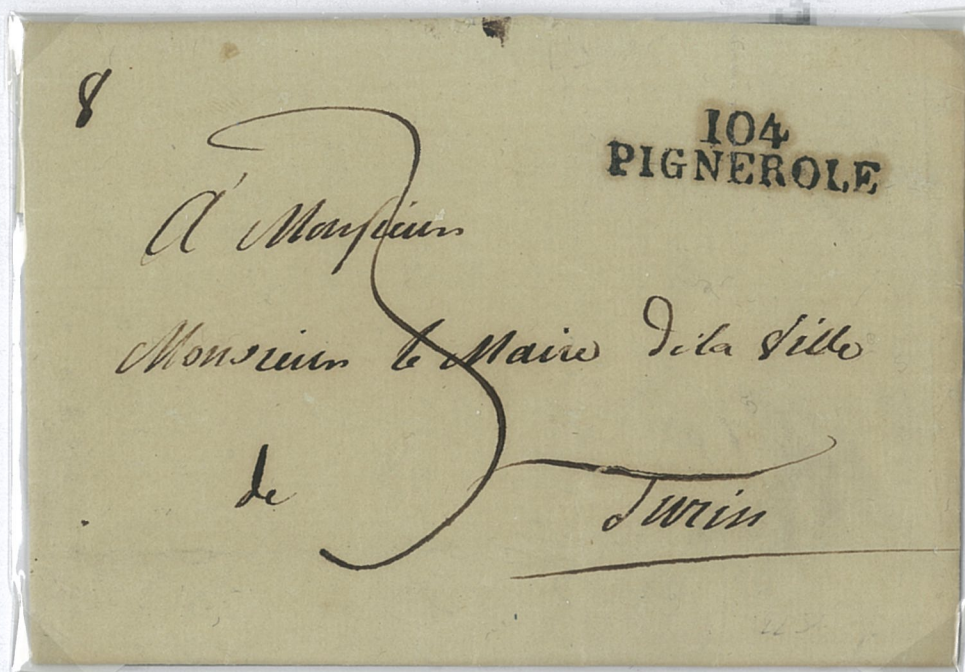 8
104
PIGNEROLE
3
A Monsieur
Monsieur le Maire de la Ville
de Turin